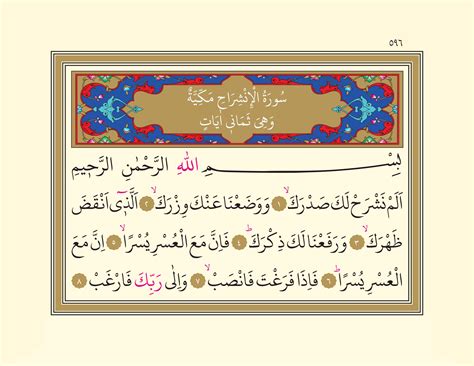 ٥٩٦
سُورَةُ الْاِنْشِرَاحِ مَكِّيَّةٌ
وَهِيَ ثَمَانِي اٰيَاتٍ
بِسْمِ اللّٰهِ الرَّحْمٰنِ الرَّحِيمِ
اَلَمْ نَشْرَحْ لَكَ صَدْرَكَۙ ﴿١﴾ وَوَضَعْنَا عَنْكَ وِزْرَكَۙ ﴿٢﴾ اَلَّذٖٓي اَنْقَضَ
ظَهْرَكَۙ ﴿٣﴾ وَرَفَعْنَا لَكَ ذِكْرَكَؕ ﴿٤﴾ فَاِنَّ مَعَ الْعُسْرِ يُسْرًاۙ ﴿٥﴾ اِنَّ مَعَ
الْعُسْرِ يُسْرًاؕ ﴿٦﴾ فَاِذَا فَرَغْتَ فَانْصَبْۙ ﴿٧﴾ وَاِلٰى رَبِّكَ فَارْغَبْ ﴿٨﴾